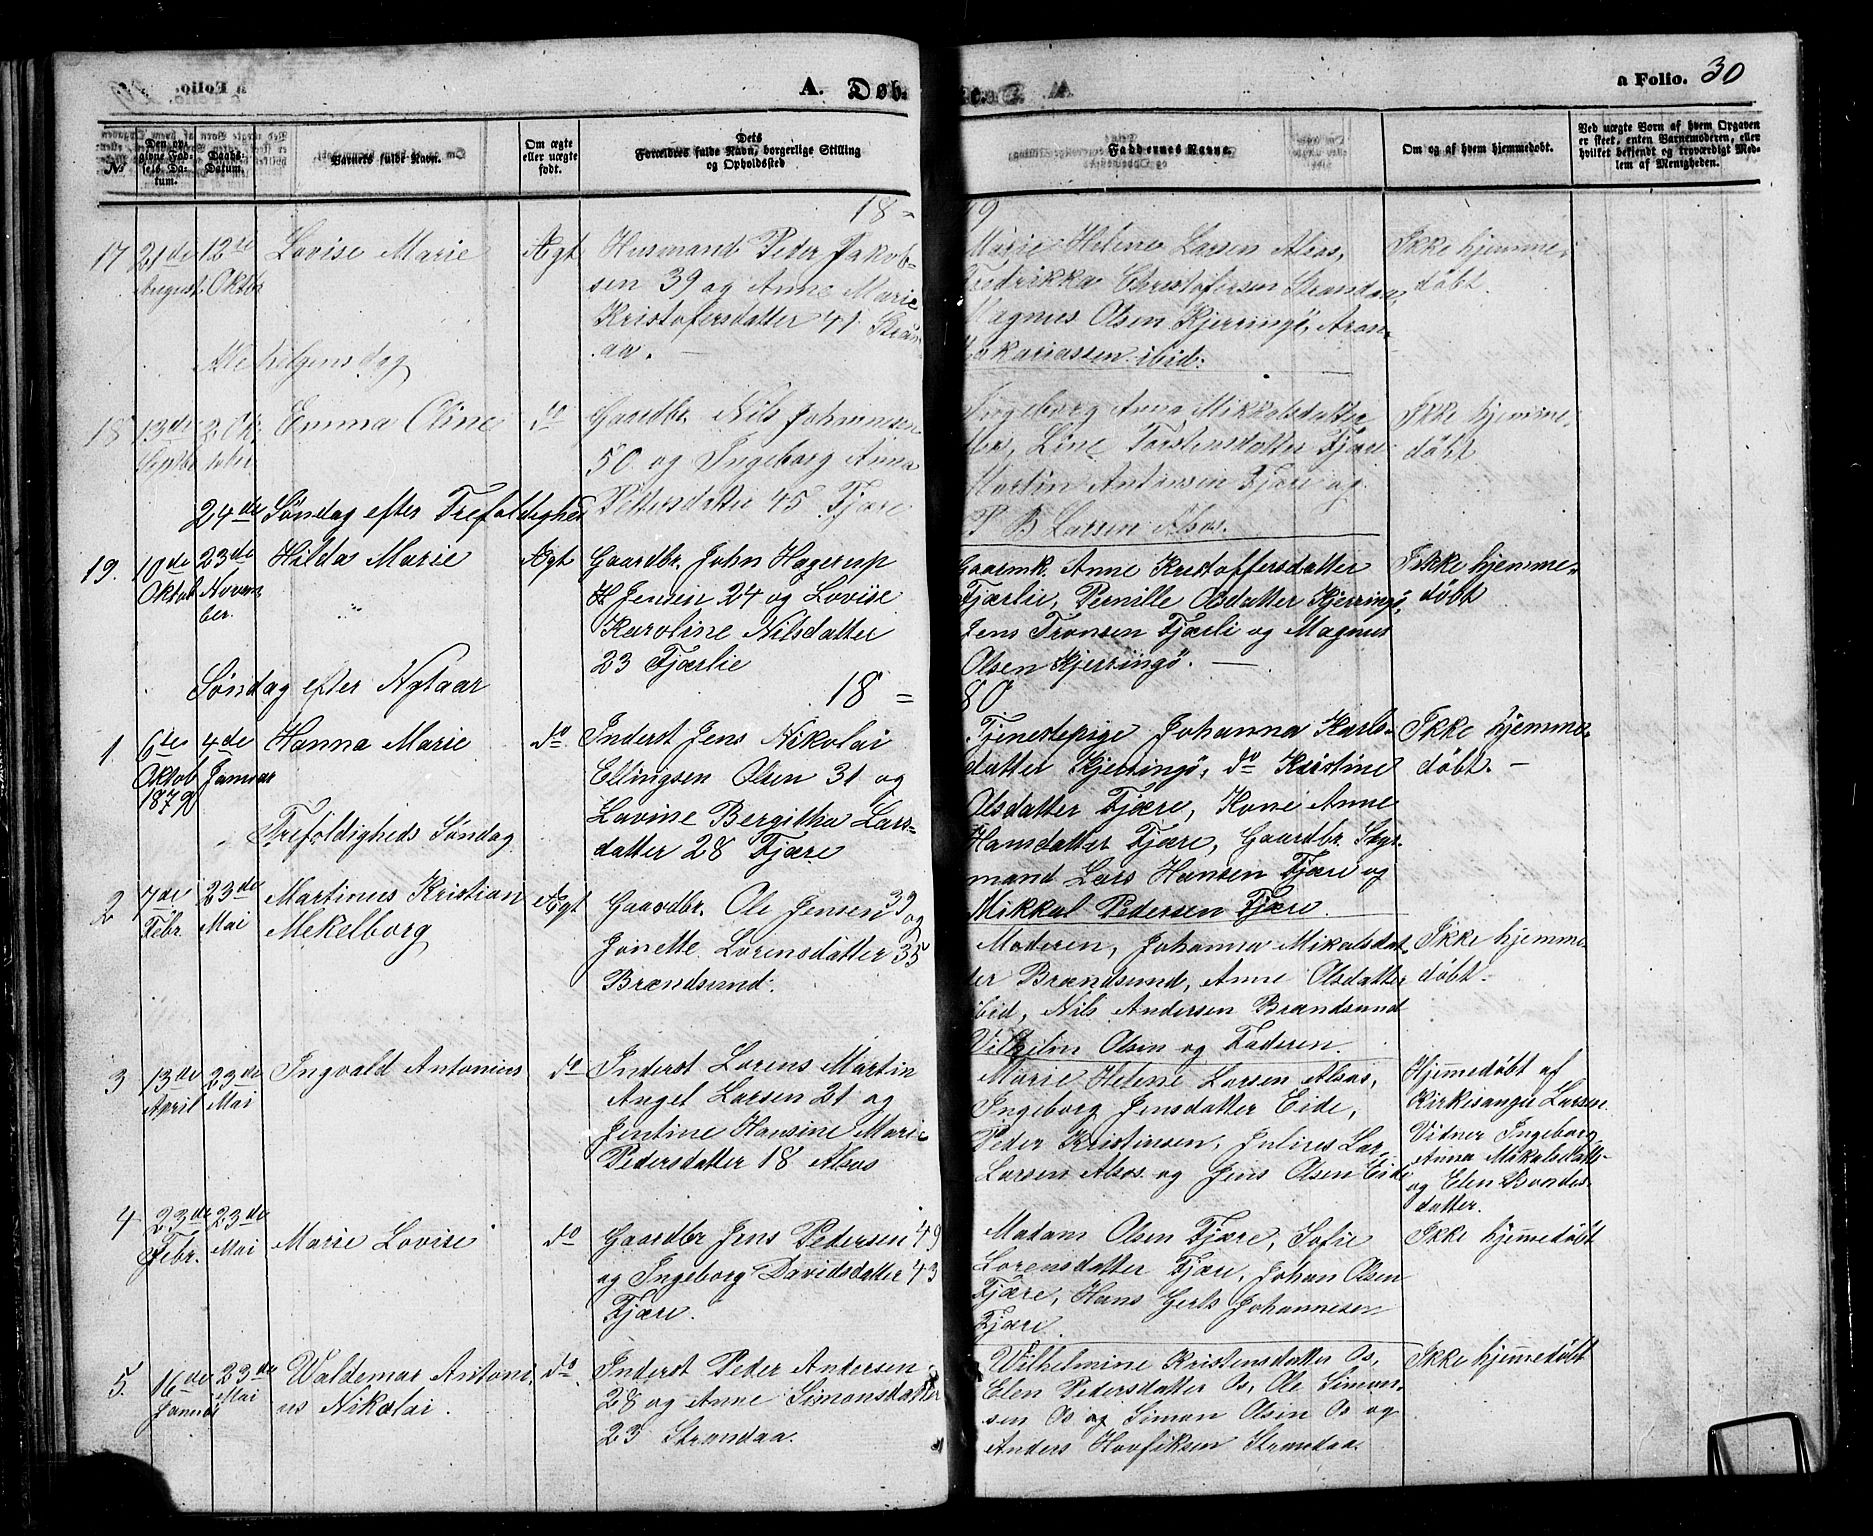 A. Døb.
a Folio. 30
№
Den opgivne Fødsels Datum.
Daabs-Datum.
Barnets fulde Navn.
Om ægte eller uægte født.
Dets Forældres fulde Navn, borgerlige Stilling og Opholdssted
Faddernes Navne.
Om og af hvem hjemmedøbt.
Ved uægte Børn af hvem Opgaven er skeet, enten Barnemoderen, eller hvilket bekjendt og troværdigt Medlem af Menigheden.
18=79
17 21de August 12te Oktbr Lovise Marie Ægt
Husmand Peder Jakob-
sen 39 og Anne Marie
Kristofersdatter 41 Stran-
aa.
Marie Helene Larsen Alsos,
Fredrikka Christofersen Strandaa,
Magnus Olsen Kjerringø, Aron
Zakariassen ibid.
Ikke hjemme-
døbt.
Alle helgensdag
18 13de Septbr 2 Oktober Emma Oline do
Gaardbr. Nils Johannsen
50 og Ingeborg Anna
Pettersdatter 45 Fjære
Ingeborg Anna Mikkalsdatter
Line Torstensdatter Fjære
Martin Antonsen Fjære og
P B Larsen Alsos.
Ikke hjemme-
døbt
24de Søndag efter Trefoldighed
19. 10de Oktob 23de November. Hilda Marie Ægt
Gaardbr. John Hagerup
H Jensen 24 og Lovise
Karoline Nilsdatter
23 Fjærlie
Gaardmk. Anne Kristoffersdatter
Fjærlie, Pernille Olsdatter Kjerringø,
Jens Tronsen Fjærli og Magnus
Olsen Kjerringø.
Ikke hjemme-
døbt
Søndag efter Nytaar
18=80
1 6te Oktob 1879 4de Januar Hanna Marie do.
Inderst Jens Nikolai
Ellingsen Olsen 31 og
Lavine Bergitha Lars-
datter 28 Fjære
Tjenestepige Johanna Karls-
datter Kjerringø, do Kristine
Olsdatter Fjære, Kone Anne
Hansdatter Fjære, Gaardbr. Styr-
mand Lars Hansen Fjære og
Mikkal Pedersen Fjære.
Ikke hjemme-
døbt.
Trefoldigheds Søndag
2 7de Febr. 23de Mai Martinus Kristian
Mekelborg Ægt
Gaardbr. Ole Jensen 39 og
Jonette Lorensdatter 35
Brændsund.
Moderen, Johanna Mikalsdat-
ter Brændsund, Anne Olsdatter
ibid, Nils Andersen Brændsund
Vilhelm Olsen og Faderen.
Ikke hjemme-
døbt.
3 13de April 23de Mai Ingvald Antonius do
Inderst Lorens Martin
Angel Larsen 21 og
Jentine Hansine Marie
Pedersdatter 18 Alsos
Marie Helene Larsen Alsos,
Ingeborg Jensdatter Eide,
Peder Kristensen, Julius Lar-
Larsen Alsos og Jens Olsen Eide
Hjemmedøbt af
Kirkesanger Larsen
Vidner Ingeborg
Anna Mikalsdatt-
og Elen
datter.
4 23de Febr. 23de Mai Marie Lovise do
Gaardbr Jens Pedersen 49
og Ingeborg Davidsdatter 43
Fjære.
Madam Olsen Fjære, Sofie
Lorensdatter Fjære, Johan Olsen
Fjære, Hans Gerts Johannesen
Fjære.
Ikke hjemmedøbt
5. 16de Januar 23de Mai Waldemar Antoni-
us Nikolai. do.
Inderst Peder Andersen
28 og Anne Simonsdatter
23 Strandaa.
Wilhelmine Kristensdatter Os,
Elen Pedersdatter Os, Ole Simon-
sen Os og Simon Olsen Os og
Anders Hovfiksen Strandaa.
Ikke hjemmedøbt